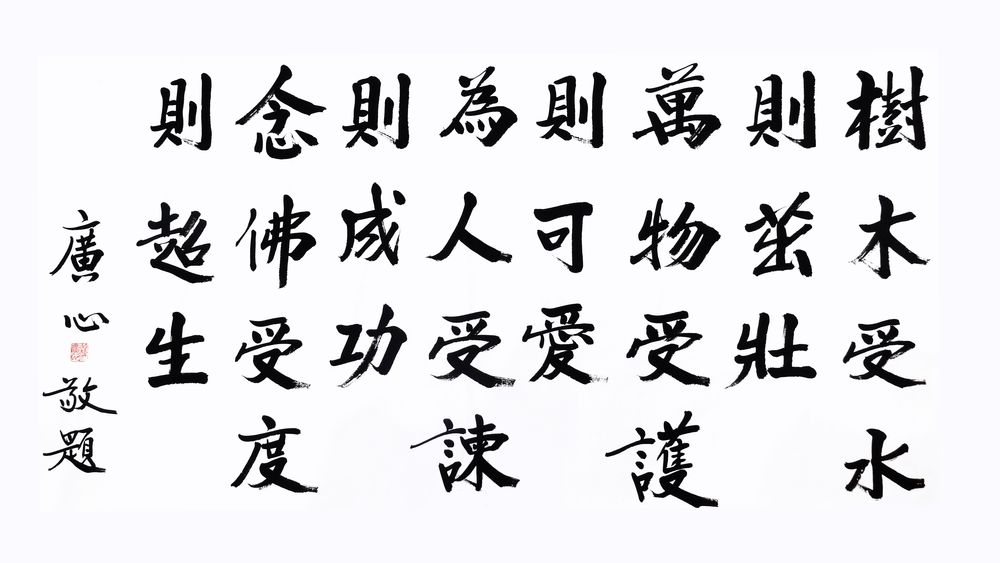 樹木受水
則茁壯
萬物受護
則可愛
為人受諫
則成功
念佛受度
則超生
廣心敬題